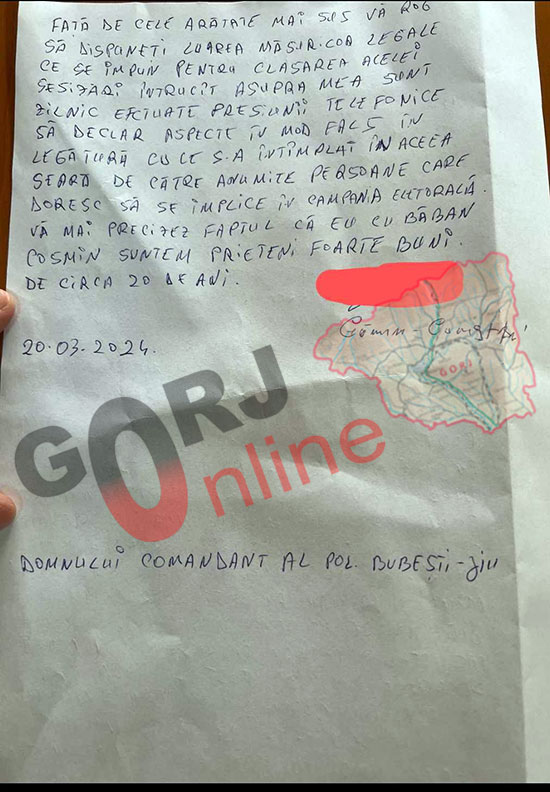 FAȚĂ DE CELE ARĂTATE MAI SUS VĂ ROG
SĂ DISPUNEȚI LUAREA MĂSURILOR LEGALE
CE SE ÎMPUN PENTRU CLASAREA ACELEI
SESIZĂRI ÎNTRUCÎT ASUPRA MEA SUNT
ZILNIC EFECTUATE PRESIUNII TELEFONICE
SĂ DECLAR ASPECTE ÎN MOD FALS ÎN
LEGĂTURĂ CU CE S-A ÎNTÎMPLAT ÎN ACEEA
SEARĂ DE CĂTRE ANUMITE PERSOANE CARE
DORESC SĂ SE ÎMPLICE ÎN CAMPANIA
VĂ MAI PRECIZEZ FAPTUL CĂ EU CU BĂBAN
COSMIN SUNTEM PRIETENI FOARTE BUNI.
DE CIRCA 20 DE ANI.
20.03.2024.
GORJ
GORJ
Online
DOMNULUI COMANDANT AL POL. BUBEȘTI-JIU